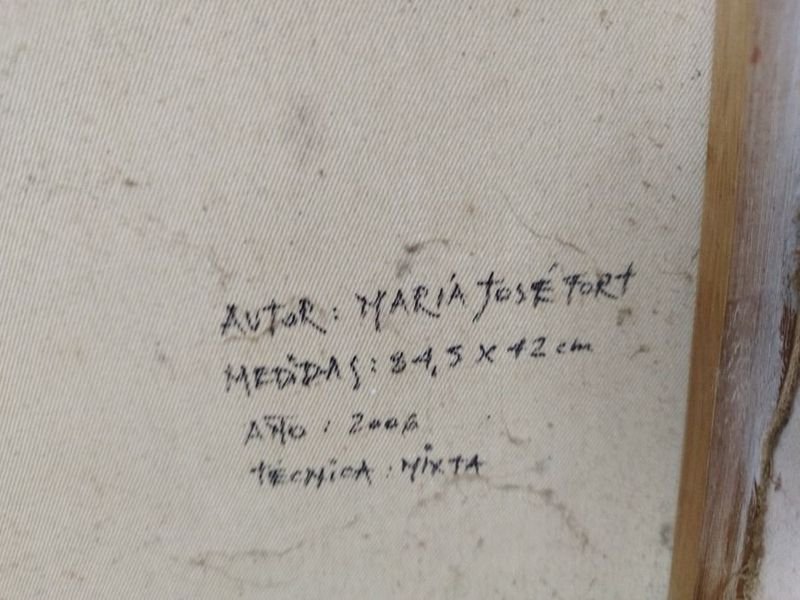 AUTOR: MARIÁ JOSÉ FORT
MEDIDAS: 84,5 X 42 cm
AÑO: 2006
TÉCNICA: MIXTA